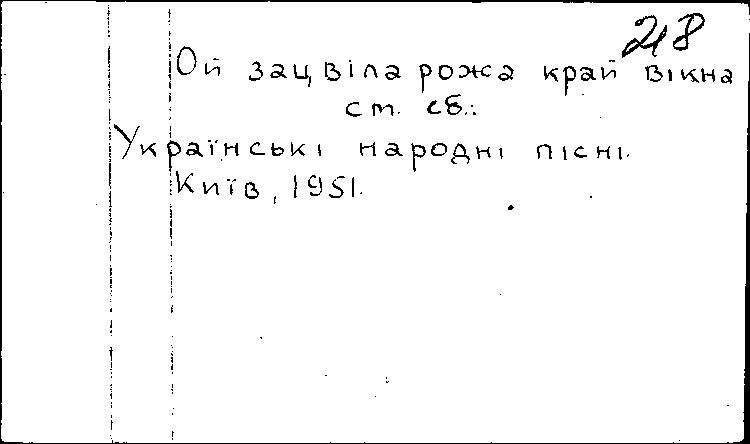 218
Ой зацвіла рожа край вікна
ст. сб.:
Українські народні пісні.
Київ, 1951.